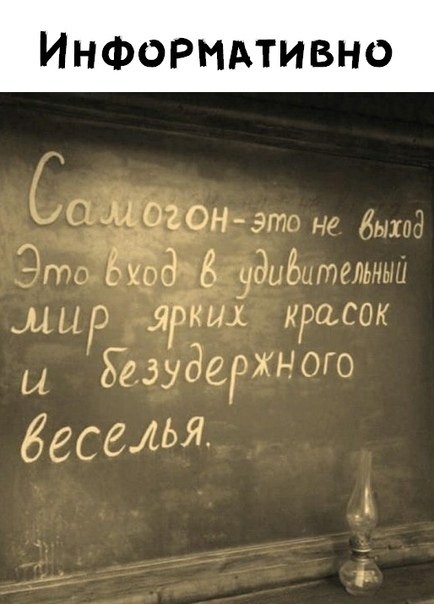 Информативно
Самогон-это не выход
Это вход в удивительный
мир ярких красок
и безудержного
веселья.